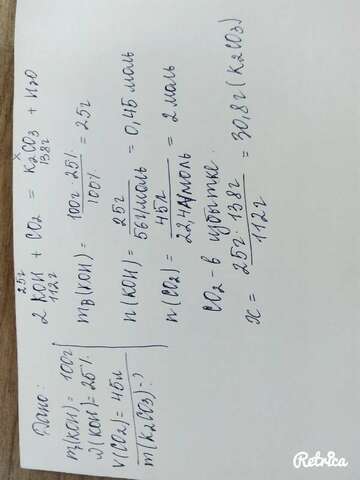 Дано:
m(KOH) = 100г
ω(KOH) = 25%
V(CO2) = 45л
m(K2CO3) - ?
25г x
2KOH + CO2 = K2CO3 + H2O
112г 138г
mв(KOH) = 100г · 25% / 100% = 25г
n(KOH) = 25г / 56г/моль = 0,45 моль
n(CO2) = 45л / 22,4л/моль = 2 моль
CO2 - в избытке.
x = 25г · 138г / 112г = 30,8г (K2CO3)
Retrica